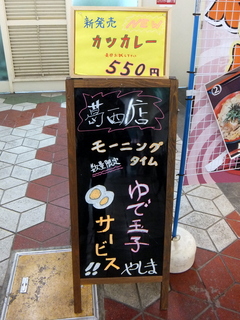 新発売 NEW
カツカレー
550円
葛西店
モーニング
タイム
数量限定
ゆで玉子
サービス!!
やしま